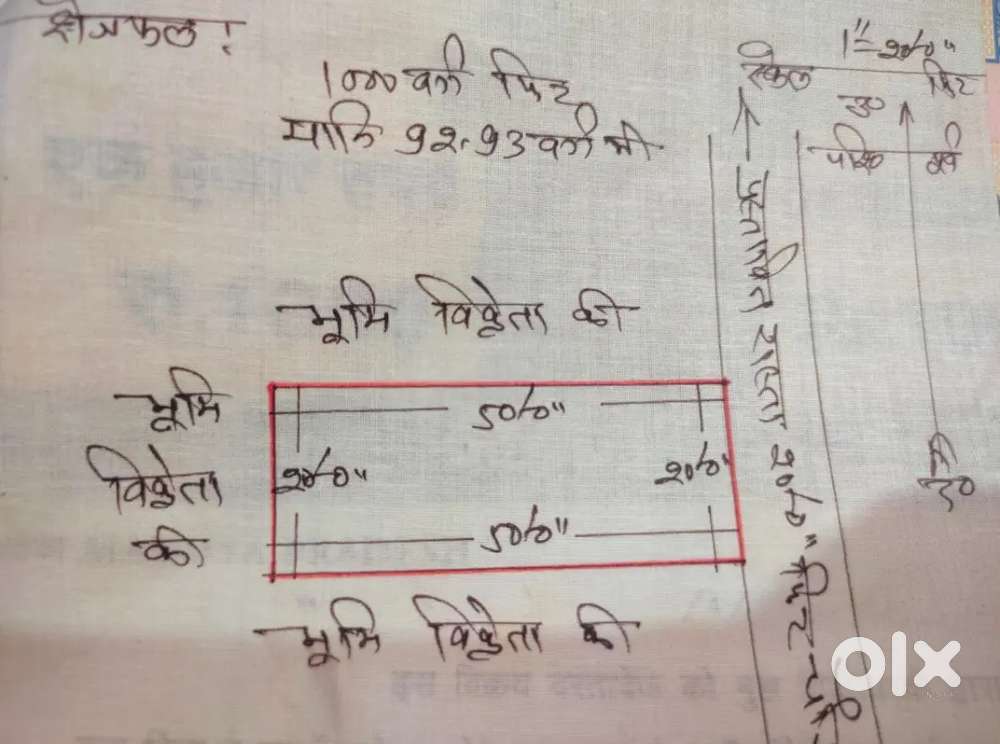 क्षेत्रफल !
1000 वर्ग फिट
यानि 92.93 वर्ग मी
स्केल 1"= 20'0" फिट
उ०
पश्चि पूर्व
द०
भूमि विक्रेता की
भूमि
विक्रेता
की
50'0"
20'0"
20'0"
50'0"
भूमि विक्रेता की
प्रस्तावित रास्ता 20'0" फिट
olx